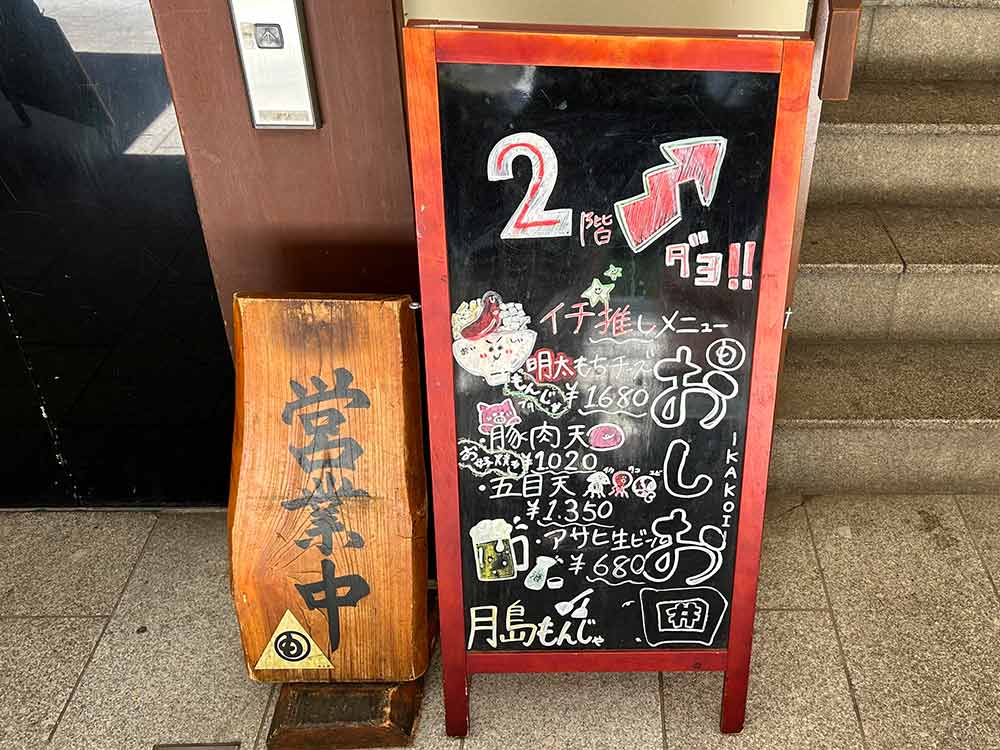 営業中
わ
2階
ダヨ!!
イチ推しメニュー
明太もちチーズ
もんじゃ ¥1680
・豚肉天
お好焼き ¥1020
・五目天
¥1.350
・アサヒ生ビール
¥680
わ
おしお
IKAKOI
囲
月島もんじゃ